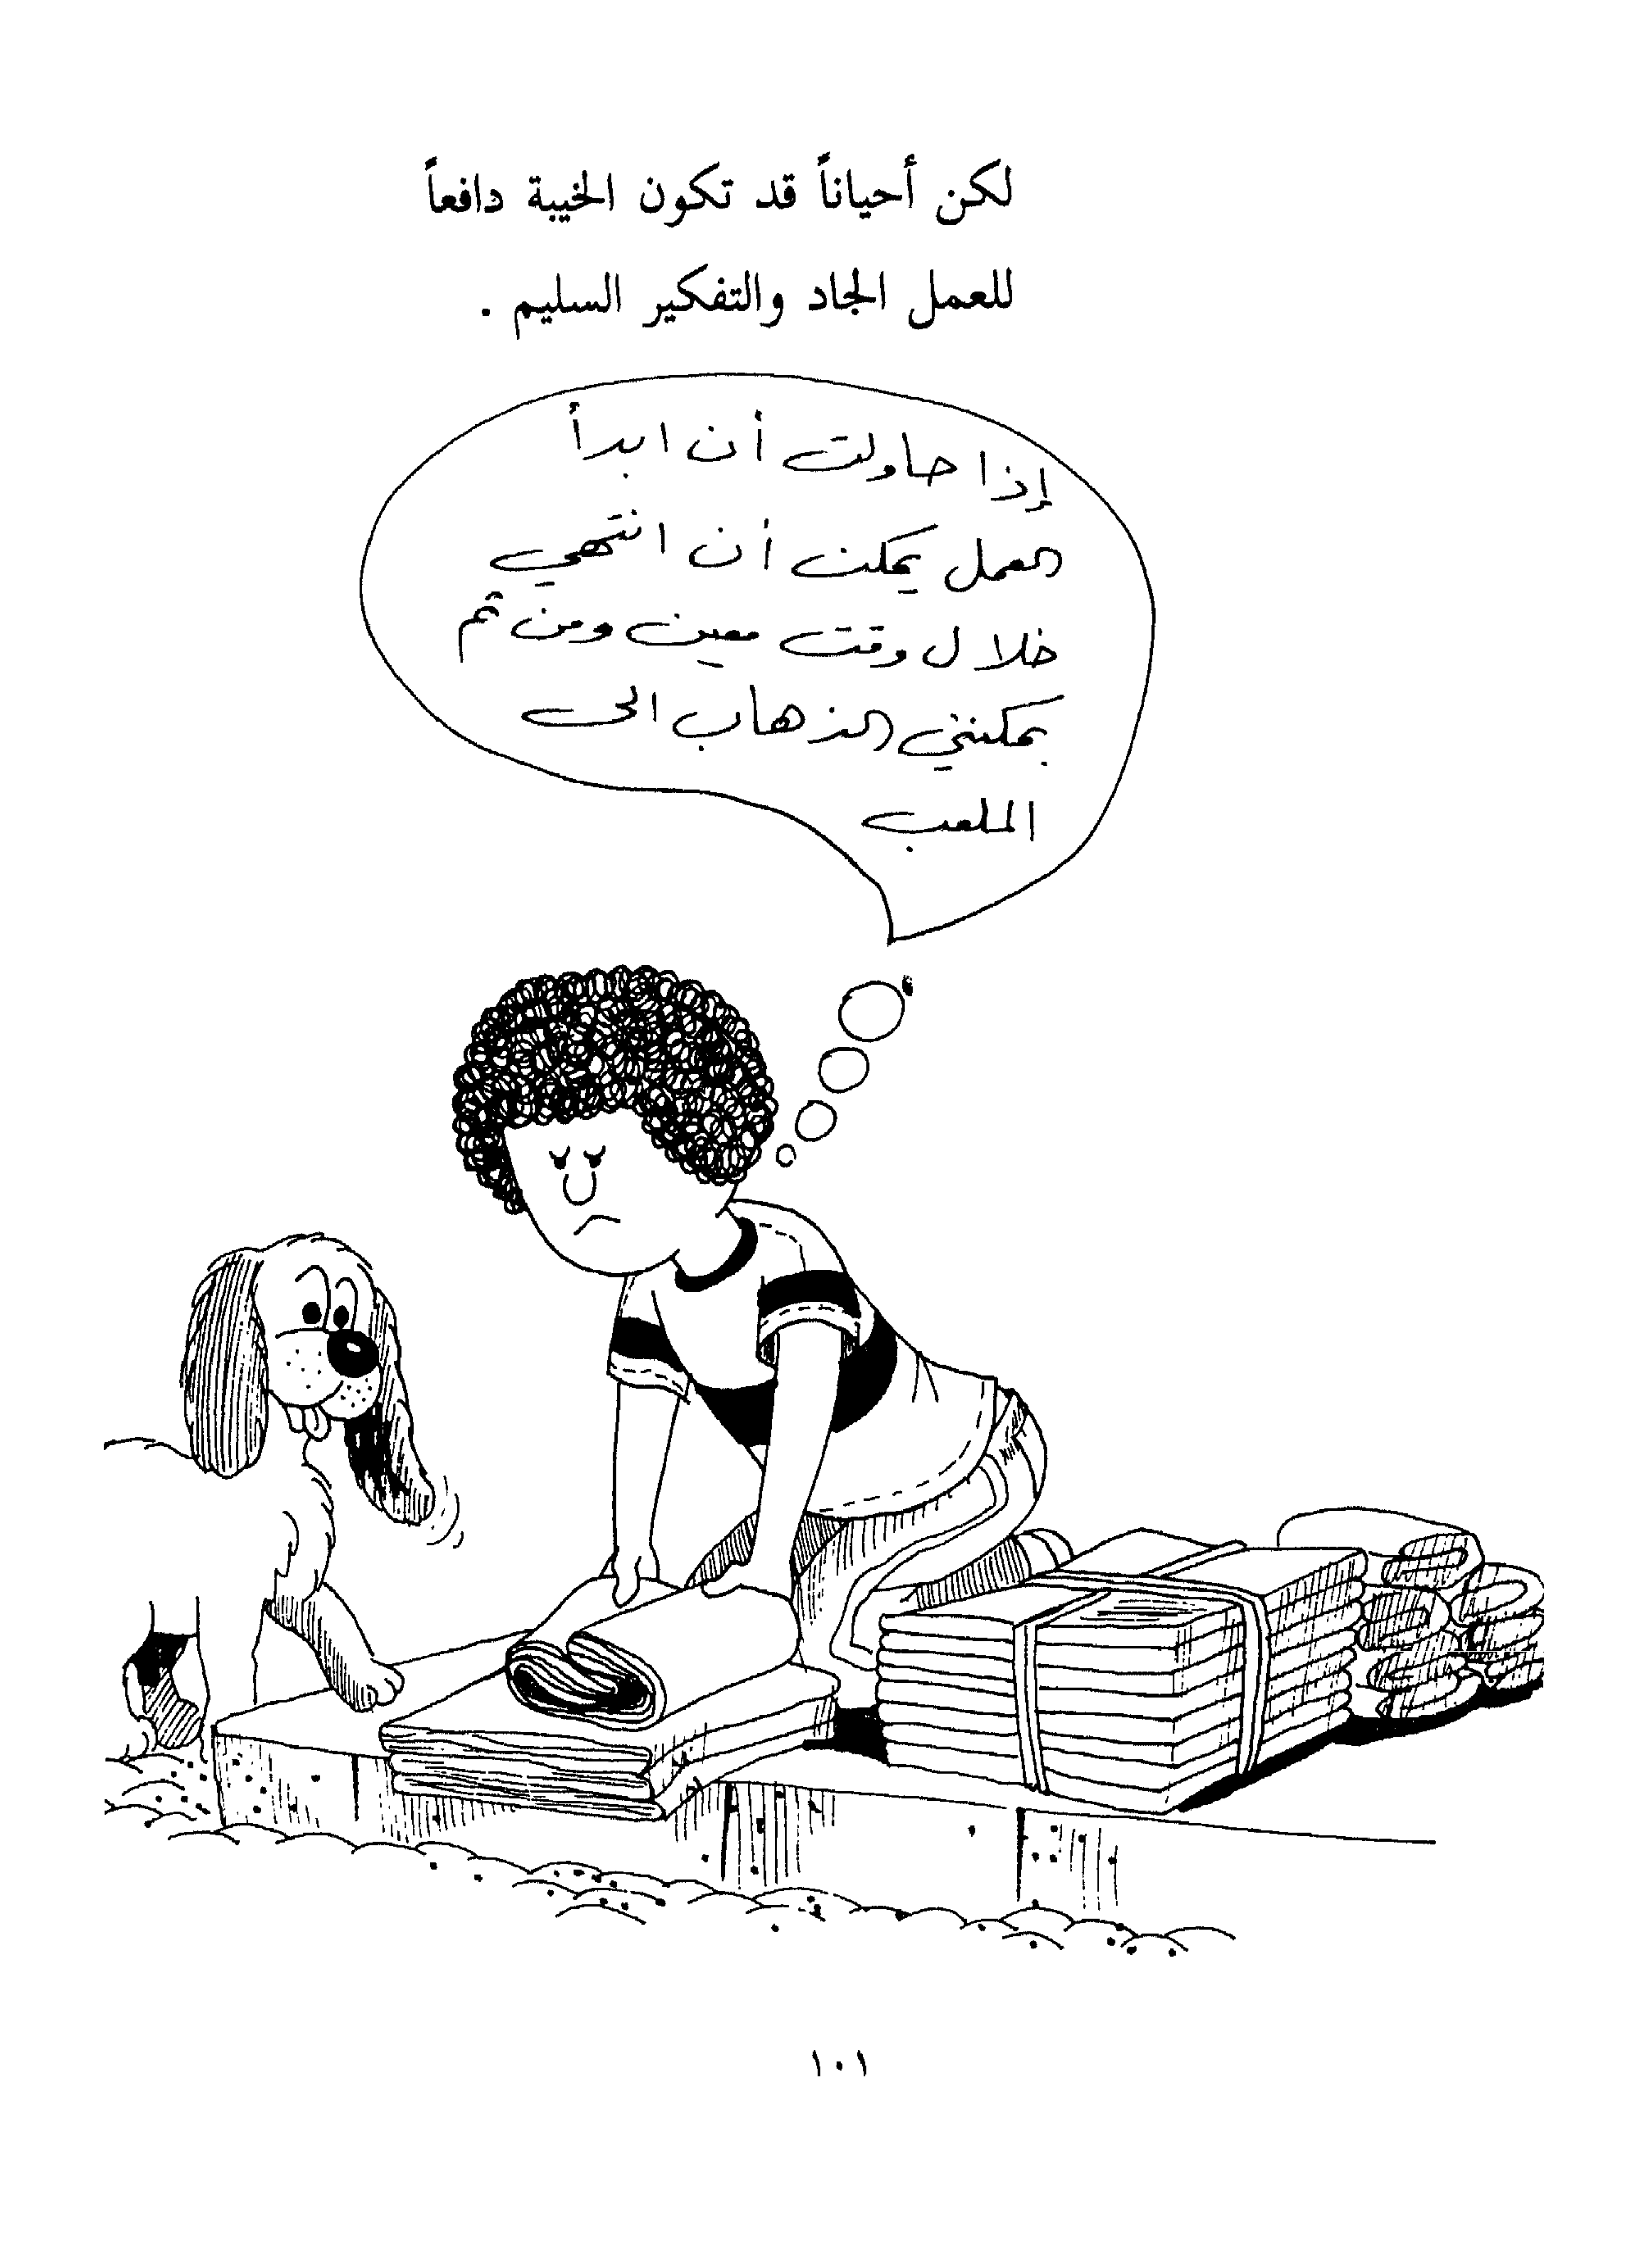 لكن أحياناً قد تكون الخيبة دافعاً
للعمل الجاد والتفكير السليم .
إذا حاولت أن ابدأ
العمل يمكن أن انتهي
خلال وقت معين ومن ثم
يمكنني الذهاب الى
الملعب
١٠١